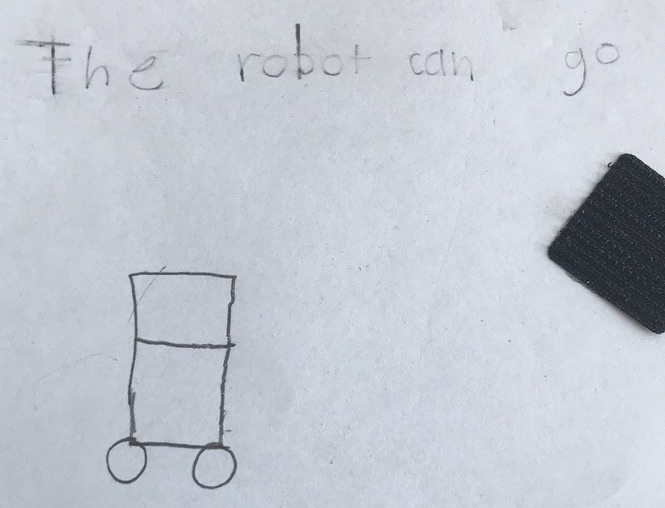 The robot can go